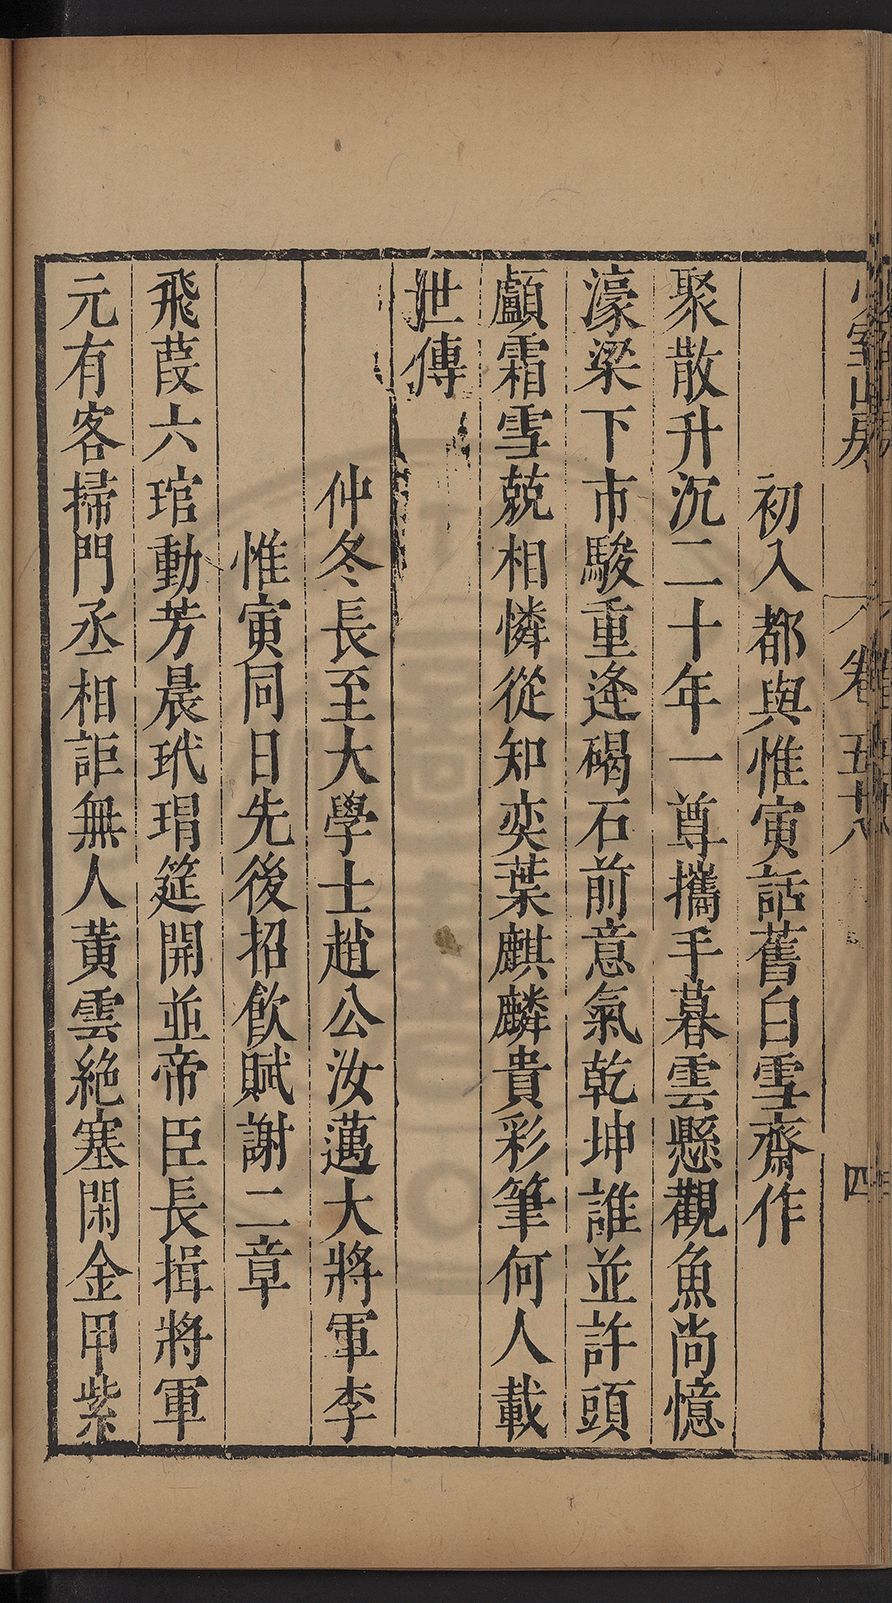 少室山房
卷五十八
四
初入都與惟寅話舊白雪齋作
聚散升沉二十年一尊攜手暮雲懸觀魚尚憶
濠梁下市駿重逢碣石前意氣乾坤誰並許頭
顱霜雪兢相憐從知奕葉麒麟貴彩筆何人載
世傳
仲冬長至大學士趙公汝邁大將軍李
惟寅同日先後招飲賦謝二章
飛葭六琯動芳晨玳瑁筵開並帝臣長揖將軍
元有客掃門丞相詎無人黃雲絶塞閑金甲紫